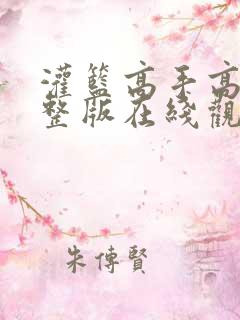 灌籃高手高
整版在綫觀
朱傳賢